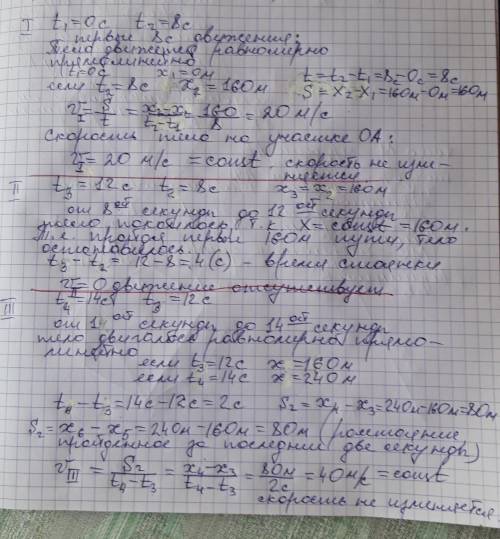 I t₁=0с t₂=8с
первые 8с движения:
Тело движется равномерно
прямолинейно
t₁=0с x₁=0м t=t₂-t₁=8с-0с=8с
если t₂=8с x₂=160м S=x₂-x₁=160м-0м=160м
v=S/t=x₂-x₁/t₂-t₁=160/8=20 м/с
скорость тела на участке ОА:
v_I=20 м/с =const скорость не изме-
няется
II t₃=12с t₂=8с x₃=x₂=160м
от 8ой секунды до 12ой секунды
тело покоилось, т.к. x=const=160м.
т.е пройдя первый 160м пути, тело
остановилось
t₃-t₂=12-8=4(с) - время стоянки
v_II=0 движение отсутствует
t₄=14с t₃=12с
III от 14ой секунды до 14ой секунды
тело двигалось равномерно прямо-
линейно
если t₃=12с x=160м
если t₄=14с x=240м
t₄-t₃=14с-12с=2с S₂=x₄-x₃=240м-160м=80м
S₂=x₆-x₅=240м-160м=80м (расстояние
пройденное за последние две секунды)
v_III=S₂/t₄-t₃=x₄-x₃/t₄-t₃=80м/2с=40м/с=const
скорость не изменяется